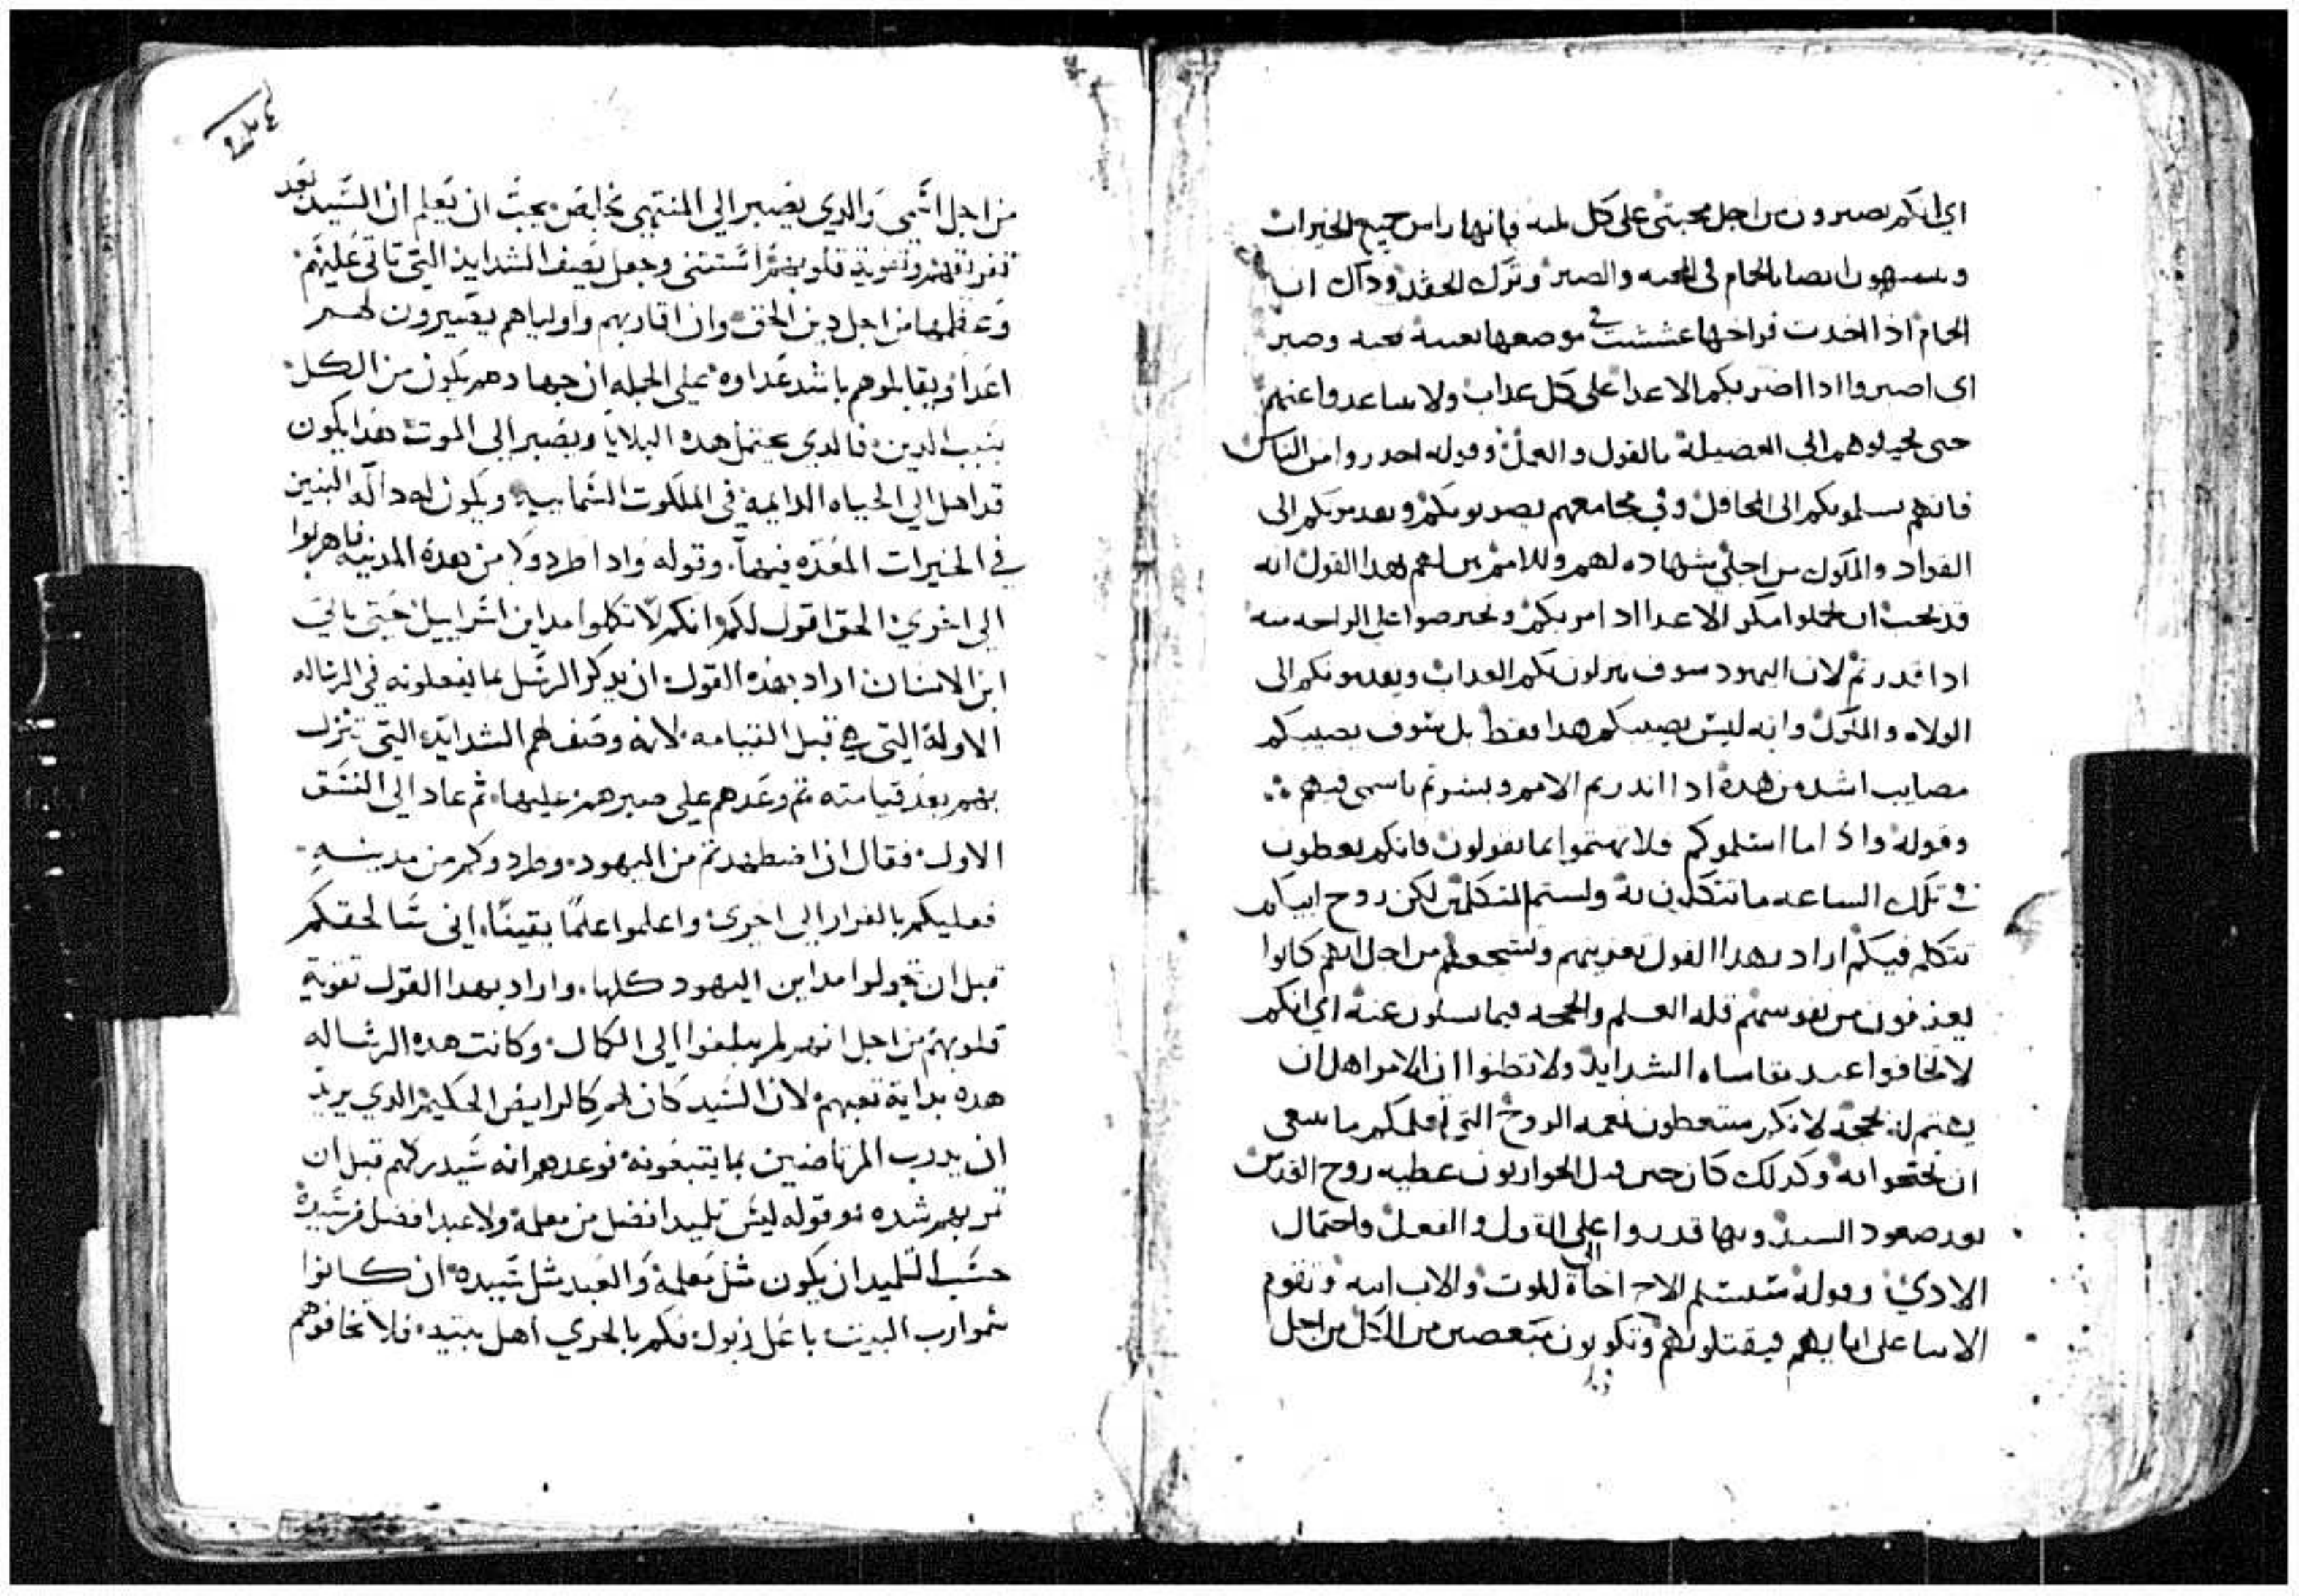 اي انكم تصبرون من اجل محبتي على كل بليه فانها راس جميع الخيرات
وتتشبهون ايضا بالحمام في المحبه والصبر وترك الحقد وذاك ان
الحمام اذا اخدت فراخها عششت في موضعها بعينه محبه وصبر
اى اصبروا ادا اضر بكم الاعدا على كل عداب ولا تتباعدوا عنهم
حتى تجيبوهم الى الفضيلة بالقول والعمل وقوله احدروا من الناس
فانهم يسلمونكم الى المحافل وفي مجامعهم يضربونكم ويقدمونكم الى
القواد والملوك من اجلي شهاده لهم وللامم بين لهم بهدا القول انه
قد يجب ان تحتملوا مكر الاعدا ادا مر بكم وتحترصوا على الراحه منه
ادا قدرتم لان اليهود سوف ينزلون بكم العداب ويقدمونكم الى
الولاه والملوك وانه ليس يصيبكم هدا فقط بل سوف يصيبكم
مصايب اشد من هده ادا اندرتم الامم وبشرتم باسمى فيهم
وقوله واذا ما اسلموكم فلا تهتموا بما تقولون فانكم تعطون
في تلك الساعه ما تتكلمون به ولستم المتكلمين لكن روح ابيكم
تتكلم فيكم اراد بهدا القول تعزيتهم وتشجيعهم من اجل انهم كانوا
يعرفون من نفوسهم قله العلم والحجه فيما يسلون عنه اي انكم
لا تخافوا عند مقاساه الشدايد ولا تظنوا ان الامر اهل ان
يهتم له بحجه لانكم ستعطون نعمه الروح التي تعلمكم ما ينبغي
ان تحتجوا به وكدلك كان حين قبل الحواريون عطيه روح القدس
بعد صعود السيد وبها قدروا على القول والفعل واحتمال
الادي وقوله سيسلم الاخ اخاه الى الموت والاب ابنه وتقوم
الابنا على ابايهم فيقتلونهم وتكونون مبغضين من الكل من اجل
من اجل اسمى والدي يصبر الي المنتهي يخلص يجب ان تعلم ان السيد بعد
تعريفهم وتقوية قلوبهم استثنى وجعل يصف الشدايد التي تاتى عليهم
وعظمها من اجل دين الحق وان اقاربهم واولياهم يصيرون لهم
اعدا ويقابلوهم باشد عداوه على الجمله ان جهادهم يكون من الكل
بسبب الدين فالدي يحتمل هده البلايا ويصبر الى الموت هدا يكون
قد اهل الي الحياه الدايمه في الملكوت السماييه ويكون له داله البنين
في الخيرات المعده فيها وقوله وادا طردوكم من هده المدينه فاهربوا
الي اخري الحق اقول لكم انكم لا تكلوا مداين اسراييل حتي ياتي
ابن الانسان اراد بهده القول ان يدكر الرسل بما يفعلونه في الرساله
الاولة التي هي قبل القيامه لانه وصف لهم الشدايد التي تنزل
بهم بعد قيامته ثم وعدهم على صبرهم عليها ثم عاد الى النسق
الاول فقال اذا اضطهدتم من اليهود وطردوكم من مدينه
فعليكم بالفرار الى اخرى واعلموا علما يقينا اني سالحقكم
قبل ان تجولوا مداين اليهود كلها واراد بهدا القول تقوية
قلوبهم من اجل انهم لم يبلغوا الي الكمال وكانت هده الرساله
هده بداية تعبهم لان السيد كان لهم كالرايض الحكيم الدي يريد
ان يدرب المرتاضين بما يتبعونه فوعدهم انه سيدركهم قبل ان
تمر بهم شده وقوله ليس تلميد افضل من معلمه ولا عبد افضل من سيده
حسب التلميد ان يكون مثل معلمه والعبد مثل سيده ان كانوا
سموا رب البيت باعل زبول فكم بالحري اهل بيته فلا تخافوهم